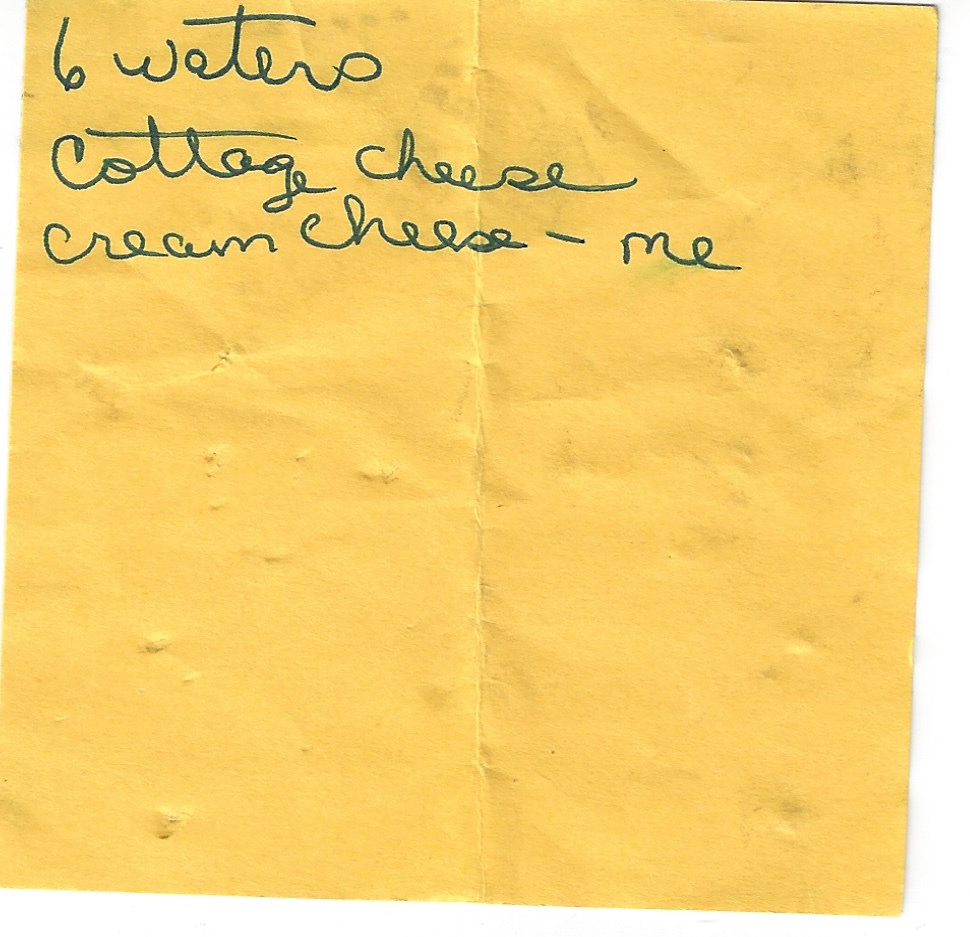 6 waters
Cottage cheese
cream cheese - me